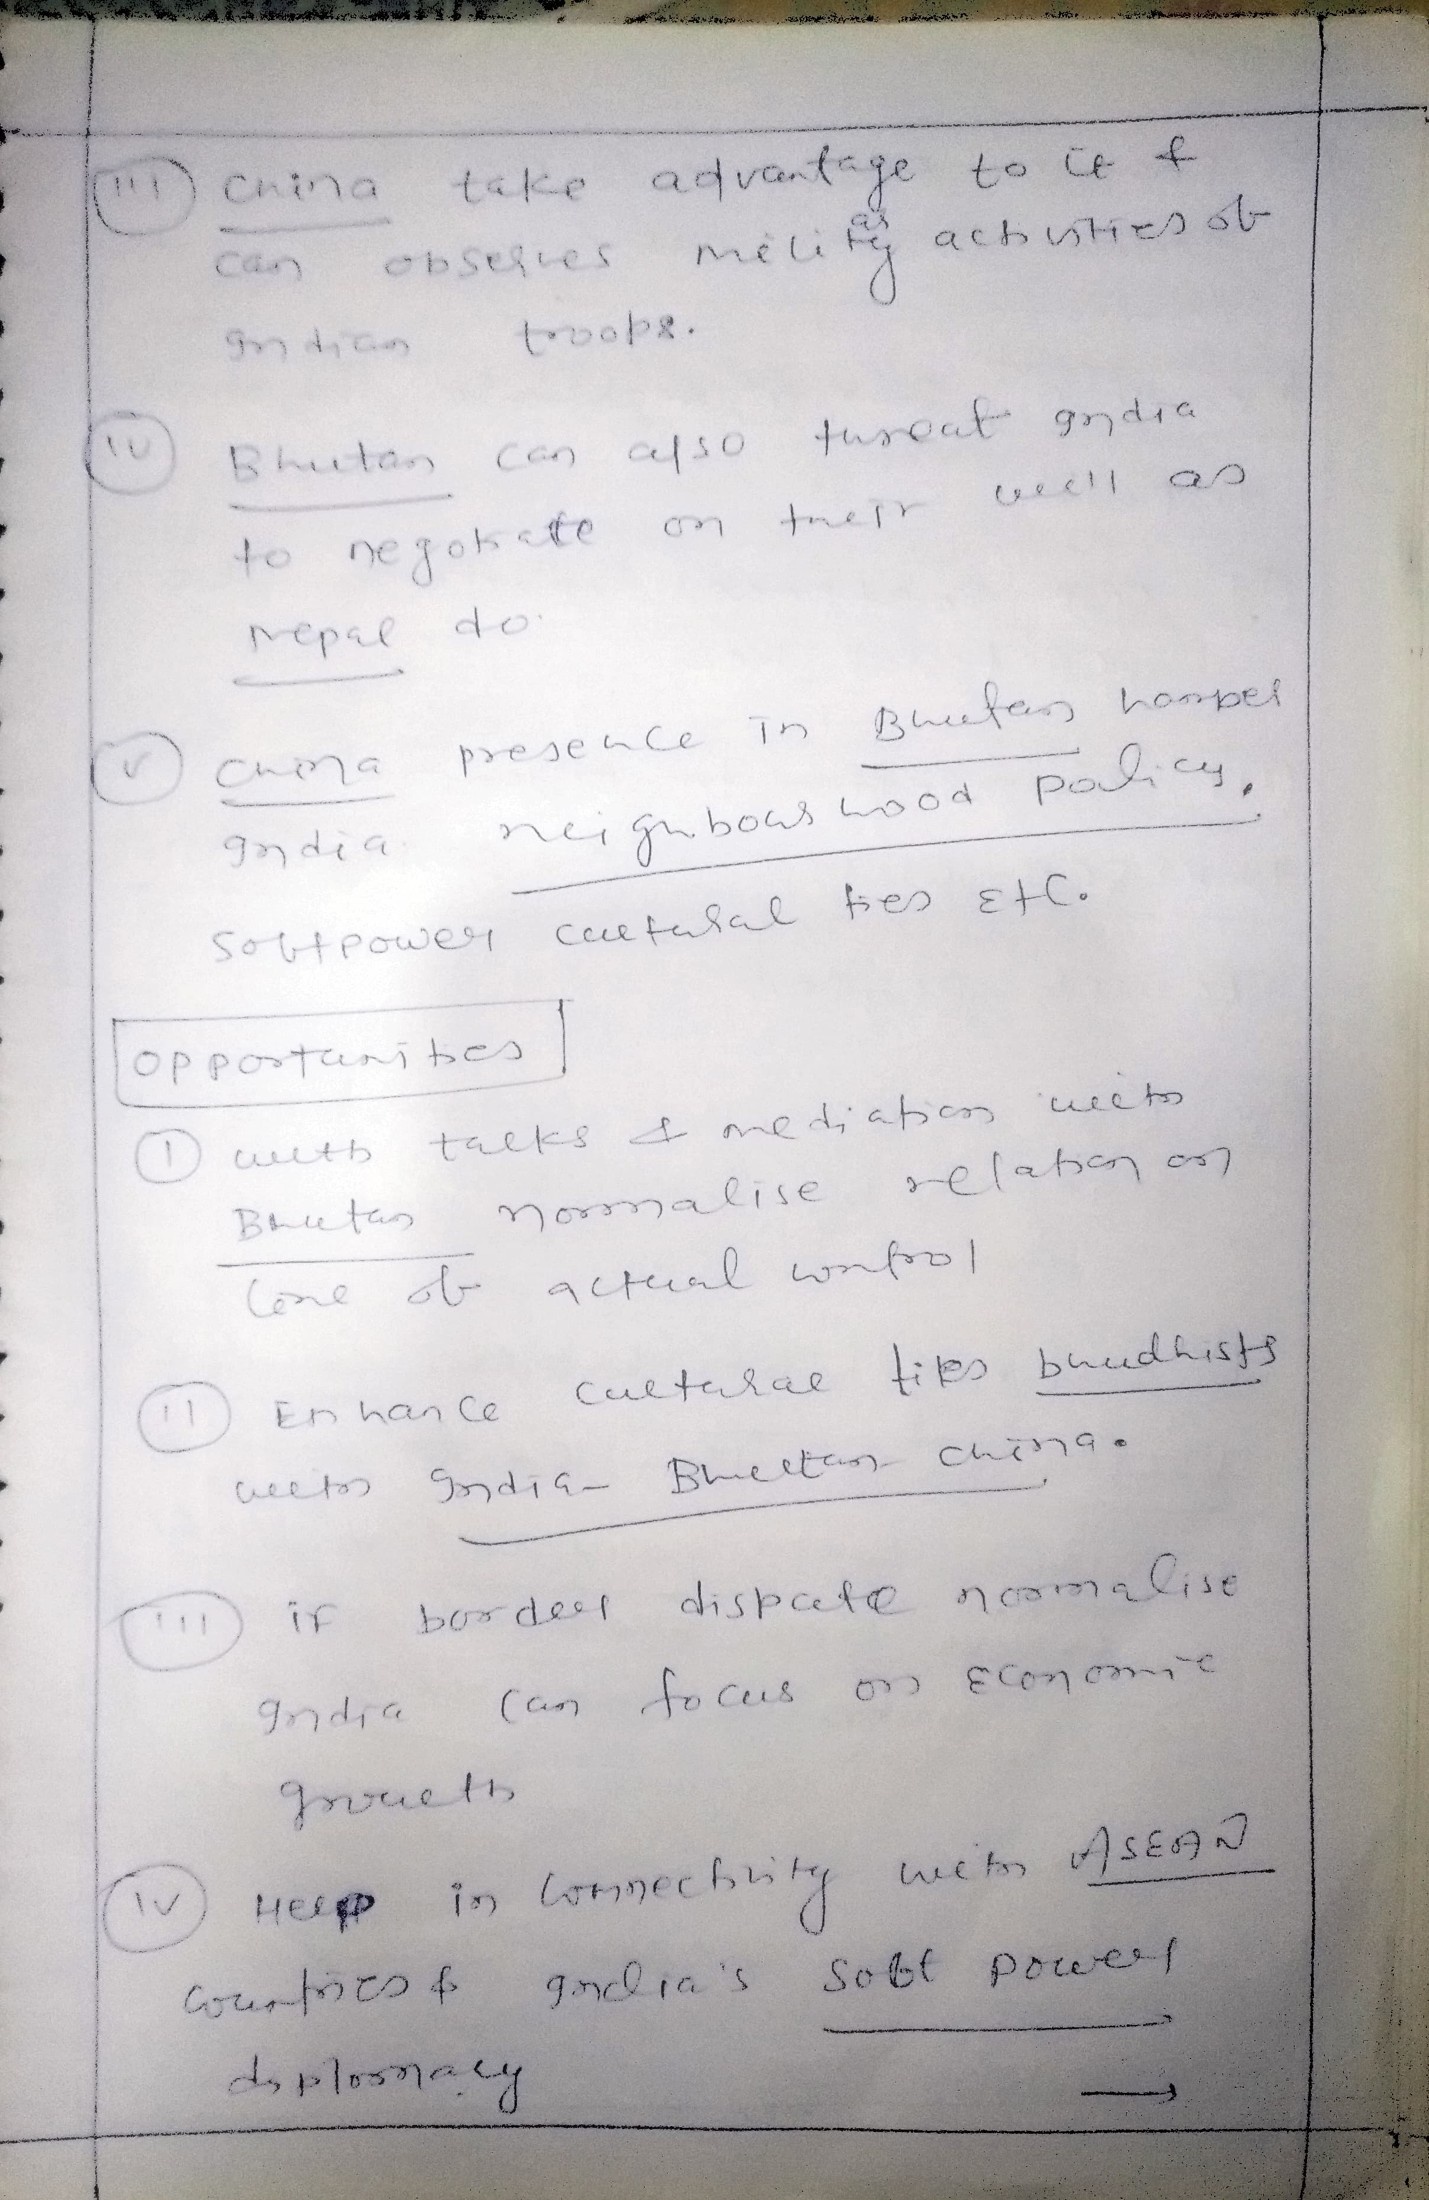 (iii) China take advantage to it &
can observes military activities of
Indian troops.
(iv) Bhutan can also threat India
to negotiate on their well as
Nepal do.
(v) China presence in Bhutan hamper
India neighbourhood policy,
softpower cultural ties etc.
Opportunities
(i) with talks & mediation with
Bhutan normalise relation on
line of actual control
(ii) Enhance cultural ties bhuddhists
with India - Bhutan - China.
(iii) if border dispute normalise
India can focus on economic
growth
(iv) Help in connectivity with ASEAN
countries & India's soft power
diplomacy →